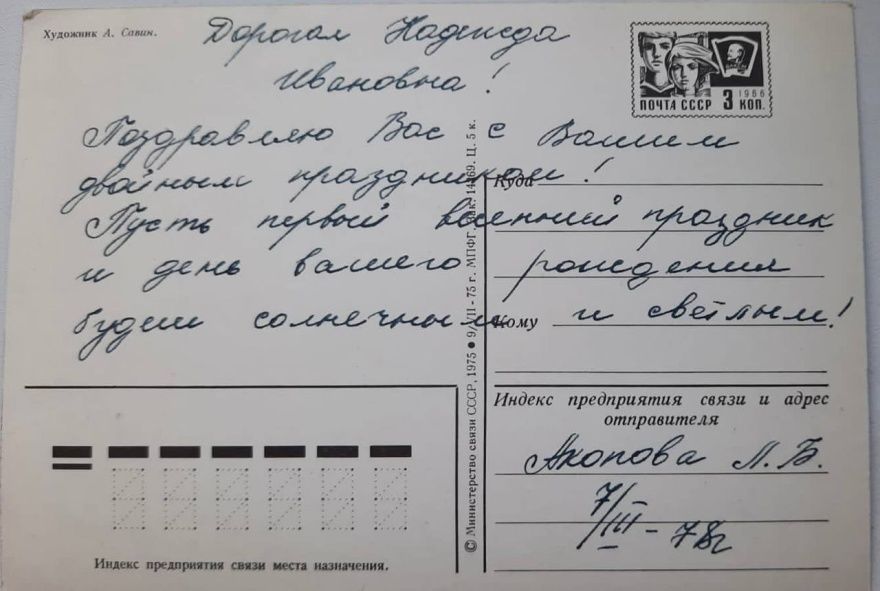 Художник А. Савин.
Дорогая Надежда
Ивановна!
ПОЧТА СССР 3 КОП.
1966
Поздравляю Вас с Вашим
двойным праздником!
Куда
Пусть первый весенний праздник
и день вашего рождения
будет солнечным и светлым!
Кому
Индекс предприятия связи и адрес
отправителя
Акопова Л. Б.
7/III - 78г
Индекс предприятия связи места назначения.
© Министерство связи СССР, 1975 ● 9/VII - 75 г. МПФГ, зак. 14369. Ц. 5 к.